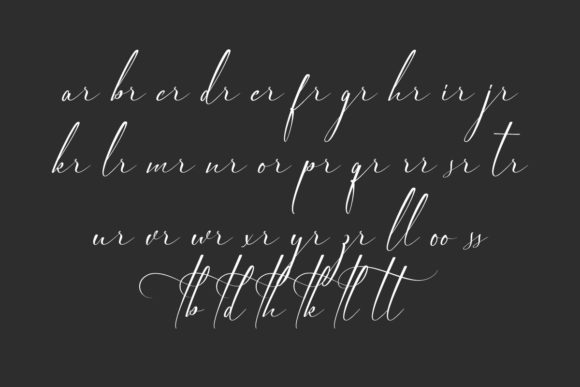 ar br cr dr er fr gr hr ir jr
kr lr mr nr or pr qr rr sr tr
ur vr wr xr yr zr ll oo ss
tb td th tk tl tt